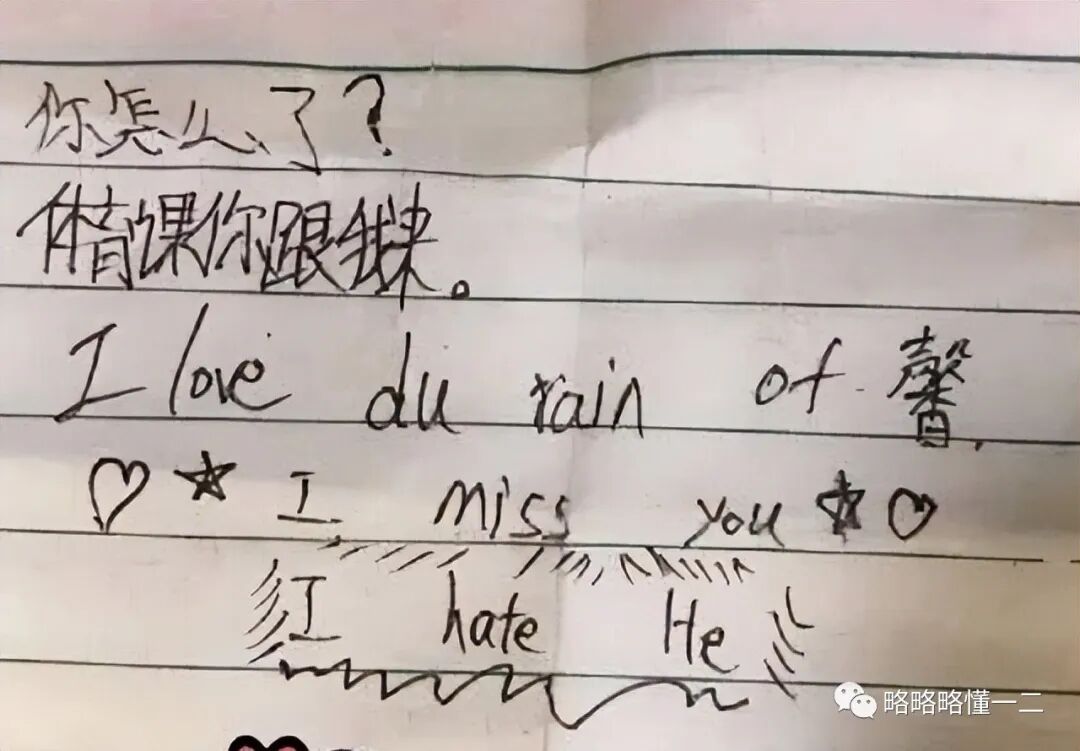 你怎么了?
体育课你跟我来。
I love du rain of 馨.
I miss you
I hate He
略略略懂一二